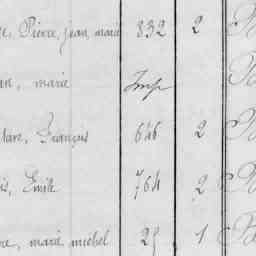 Pierre, jean, marie 832 2
marie Imp
François 646 2
Emile 764 2
marie michel 25 1